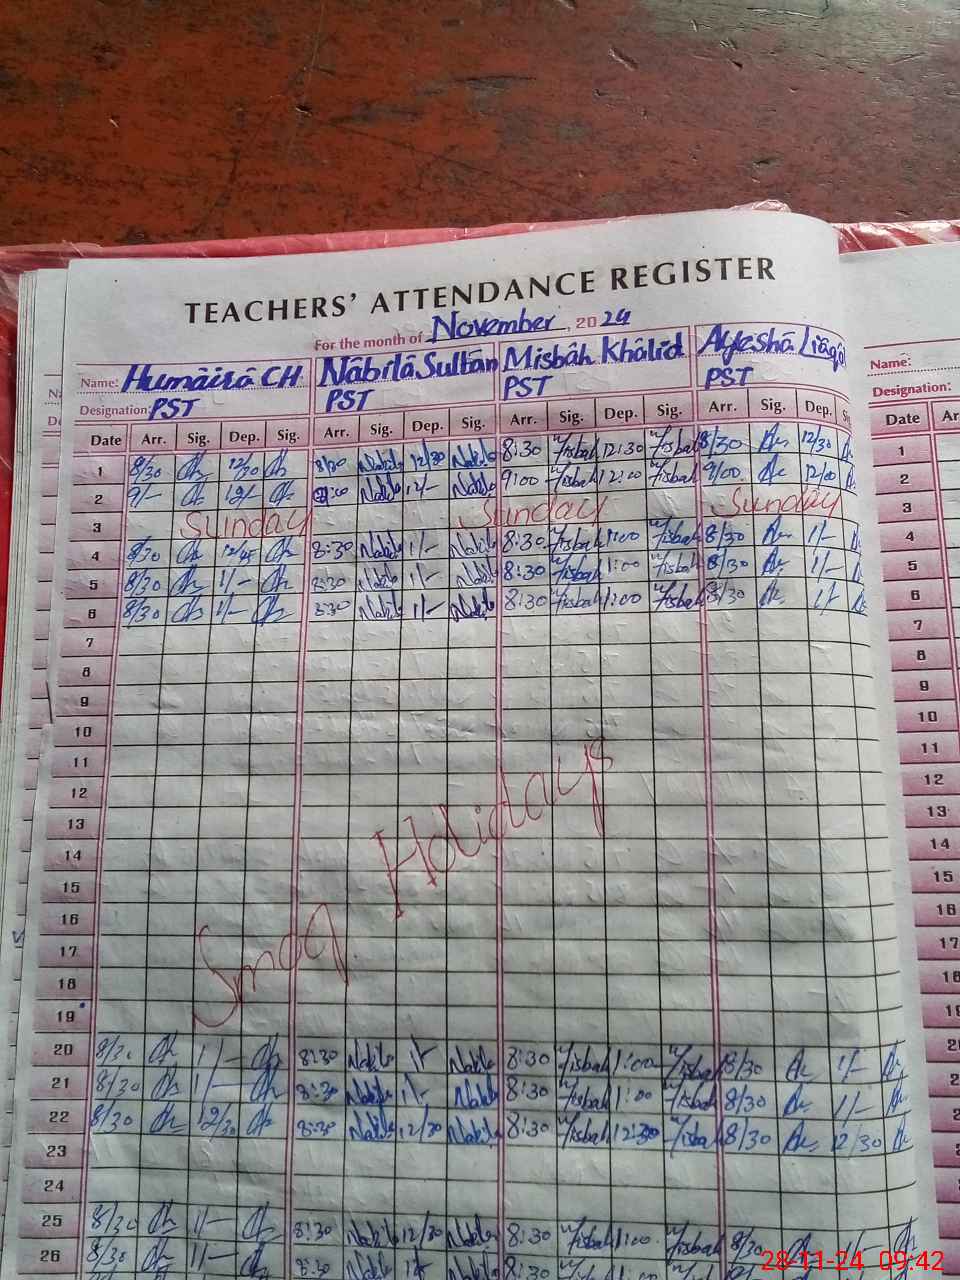 TEACHERS' ATTENDANCE REGISTER
For the month of November, 2024
Name: Humaira CH Nabila Sultan Misbah Khalid Ayesha Name:
Designation: PST PST PST PST Designation:
Date Arr. Sig. Dep. Sig. Arr. Sig. Dep. Sig. Arr. Sig. Dep. Sig. Arr. Sig. Dep. Date
1 8/30 12/30 8/30 Nabila 12/30 Nabila 8:30 Misbah 12:30 Misbah 8/30 12/30 1
2 9/- 12/- Nabila 12/- Nabila 9:00 Misbah 12:00 Misbah 9/00 12/00 2
3 Sunday Sunday Sunday 3
4 8/30 12/45 8:30 Nabila 1/- Nabila 8:30 Misbah 1:00 Misbah 8/30 1/- 4
5 8/30 1/- 8:30 Nabila 1/- Nabila 8:30 Misbah 1:00 Misbah 8/30 1/- 5
6 8/30 1/- 8:30 Nabila 1/- Nabila 8:30 Misbah 1:00 Misbah 8/30 1/- 6
7 7
8 8
9 9
10 10
11 11
12 12
13 13
14 14
15 15
16 16
17 17
18 18
19 19
Smog Holidays
20 8/30 1/- 8:30 Nabila 1/- Nabila 8:30 Misbah 1:00 Misbah 8/30 1/-
21 8/30 1/- 8:30 Nabila 1/- Nabila 8:30 Misbah 1:00 Misbah 8/30 1/-
22 8/30 12/30 8:30 Nabila 12/30 Nabila 8:30 Misbah 12:30 Misbah 8/30 12/30
23
24
25 8/30 1/- 8:30 Nabila 12/30 Nabila 8:30 Misbah 1:00 Misbah 8/30 1/-
26 8/30 1/- 8:30 Nabila
28-11-24 09:42